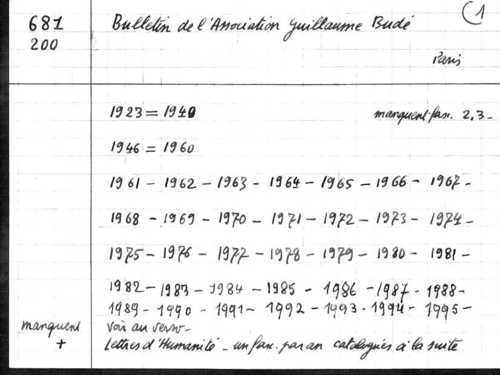 681 Bulletin de l'Association Guillaume Budé (1
200
Paris
1923 = 1940 manquent fax. 2.3 -
1946 = 1960
1961 - 1962 - 1963 - 1964 - 1965 - 1966 - 1967 -
1968 - 1969 - 1970 - 1971 - 1972 - 1973 - 1974 -
1975 - 1976 - 1977 - 1978 - 1979 - 1980 - 1981 -
1982 - 1983 - 1984 - 1985 - 1986 - 1987 - 1988 -
1989 - 1990 - 1991 - 1992 - 1993 - 1994 - 1995 -
manquent voir au verso -
+ Lettres d'Humanité - un fax. par an catalogués à la suite